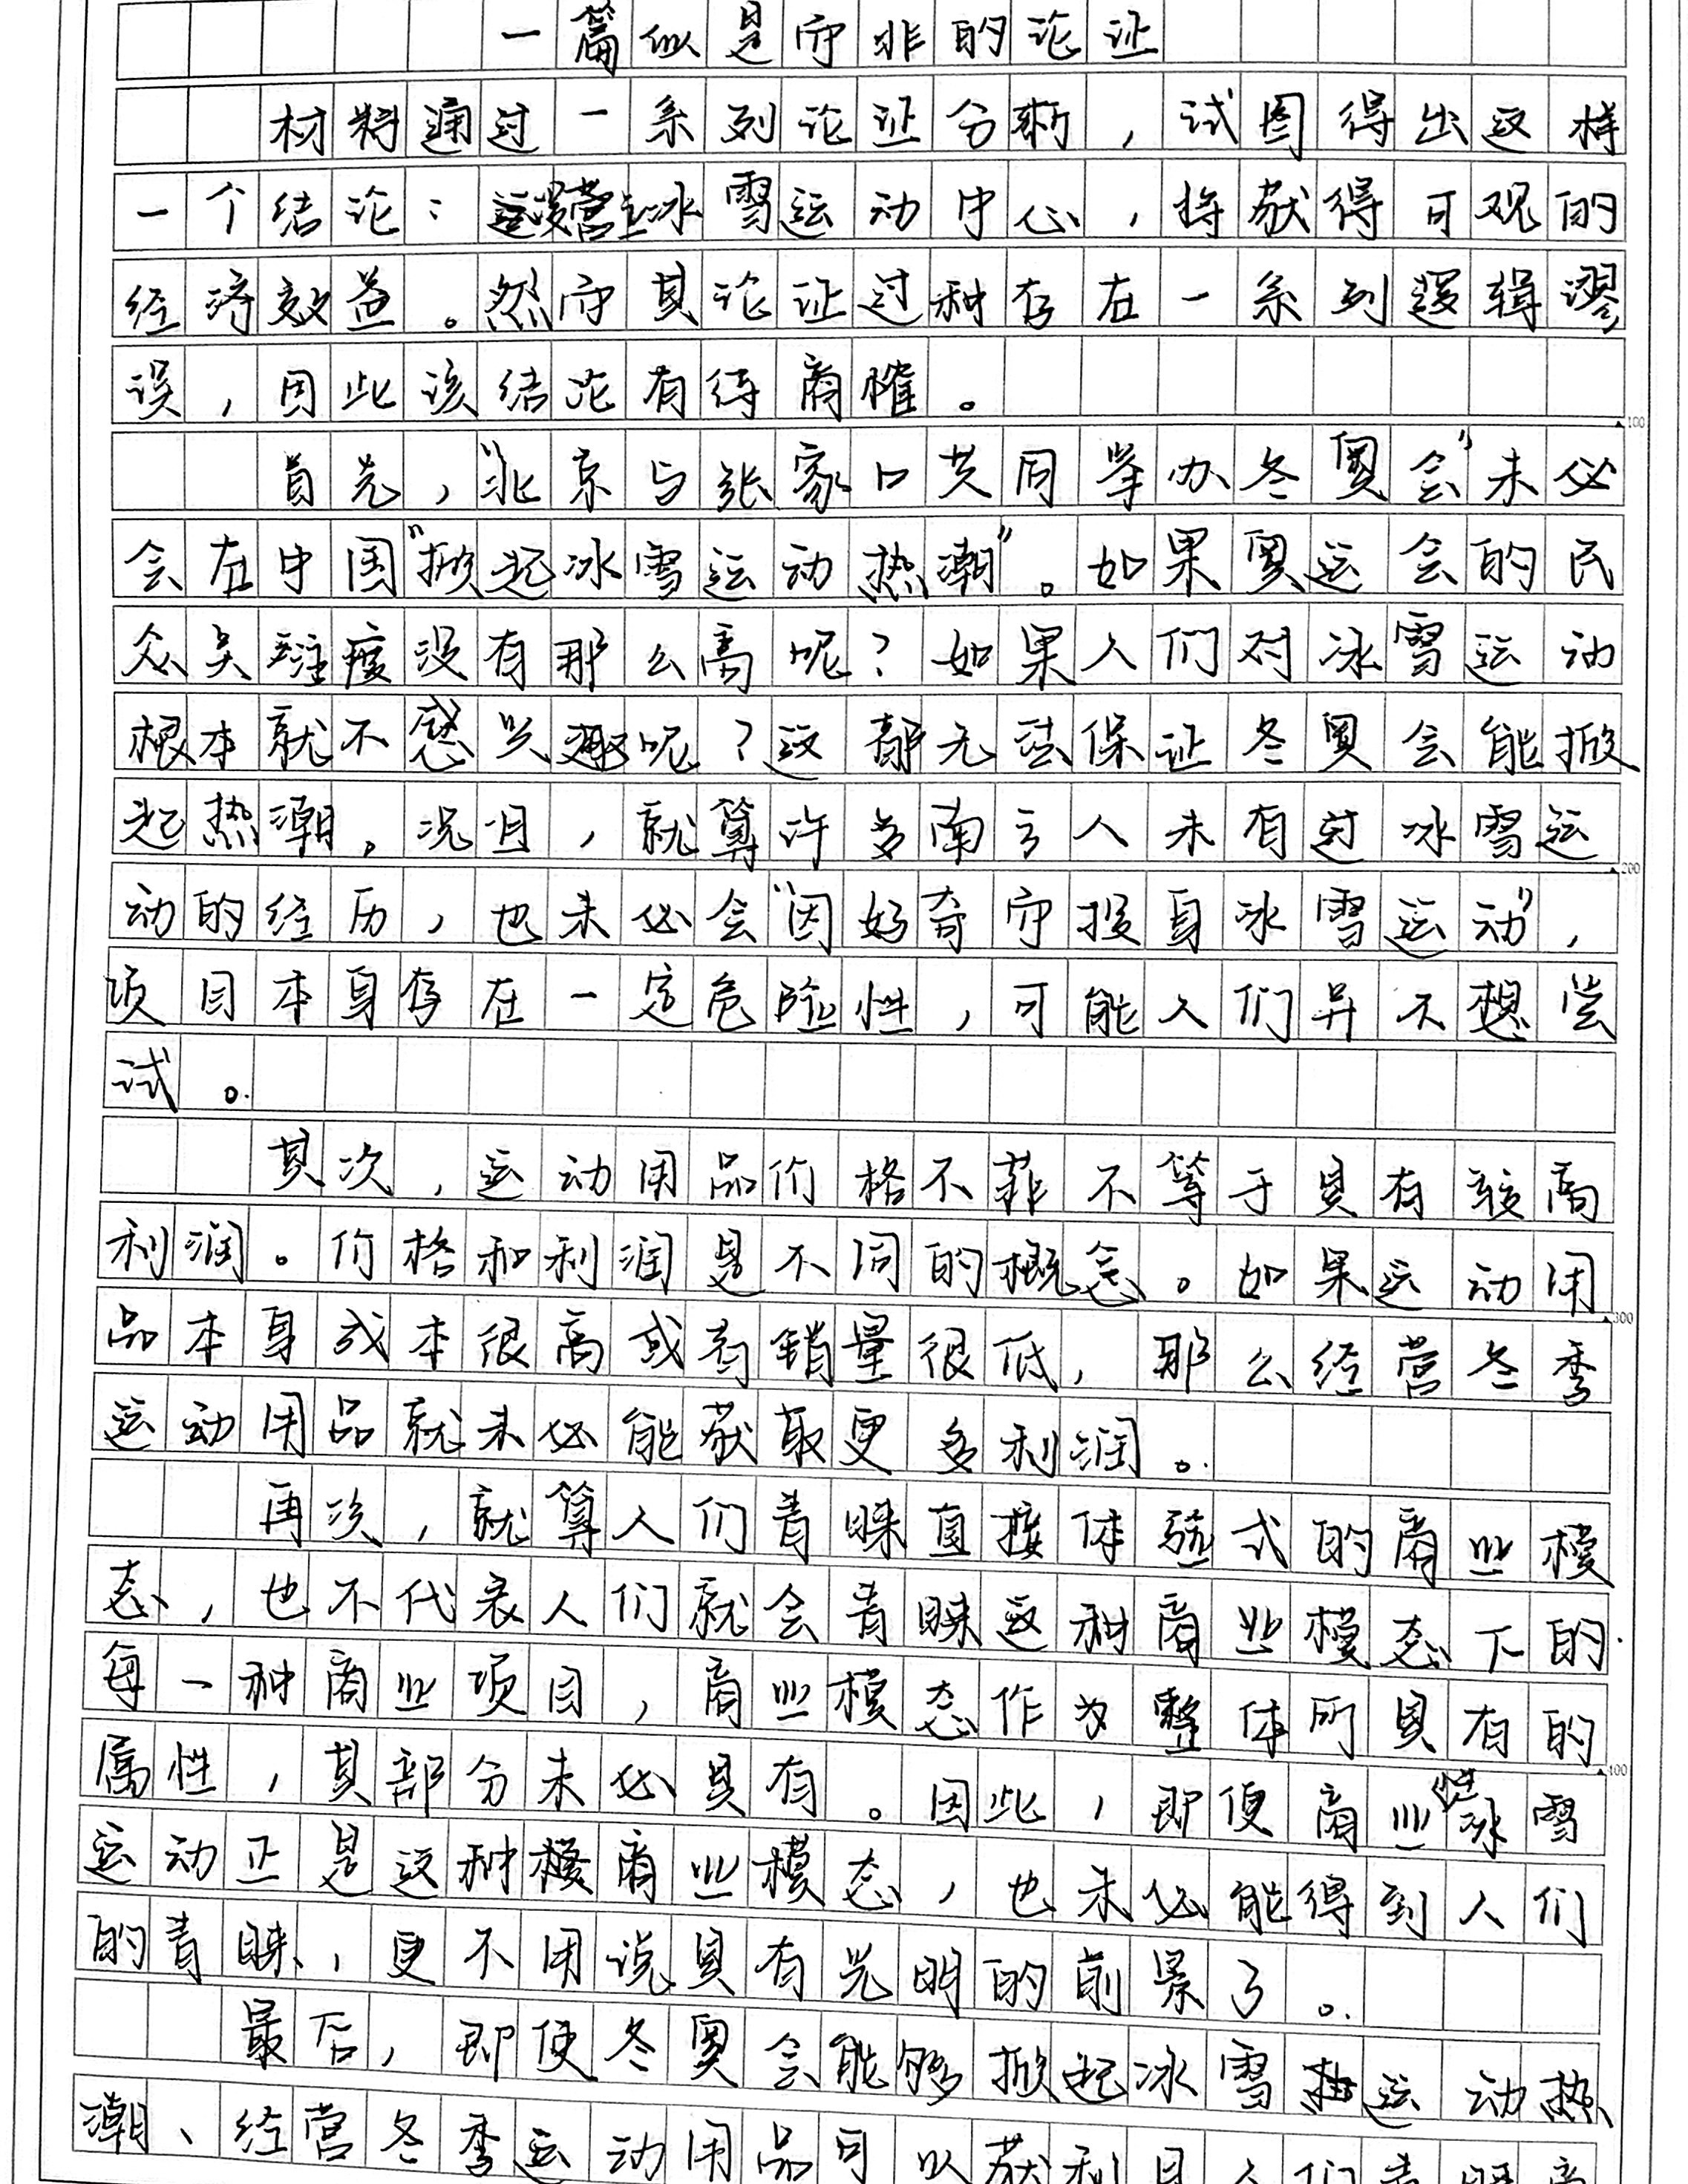 一篇似是而非的论证
材料通过一系列论证分析，试图得出这样
一个结论：建设冰雪运动中心，将获得可观的
经济效益。然而其论证过种存在一系列逻辑谬
误，因此该结论有待商榷。
100
首先，“北京与张家口共同举办冬奥会”未必
会在中国“掀起冰雪运动热潮”。如果奥运会的民
众关注度没有那么高呢？如果人们对冰雪运动
根本就不感兴趣呢？这都无法保证冬奥会能掀
起热潮。况且，就算许多南方人未有过冰雪运
200
动的经历，也未必会“因好奇而投身冰雪运动”，
项目本身存在一定危险性，可能人们并不想尝
试。
其次，运动用品价格不菲不等于具有较高
利润。价格和利润是不同的概念。如果运动用
300
品本身成本很高或者销量很低，那么经营冬季
运动用品就未必能获取更多利润。
再次，就算人们青睐直接体验式的商业模
态，也不代表人们就会青睐这种商业模态下的
每一种商业项目，商业模态作为整体所具有的
400
属性，其部分未必具有。因此，即便商业性冰雪
运动正是这种商业模态，也未必能得到人们
的青睐，更不用说具有光明的前景了。
最后，即便冬奥会能够掀起冰雪运动热
潮、经营冬季运动用品可以获利且人们青睐商